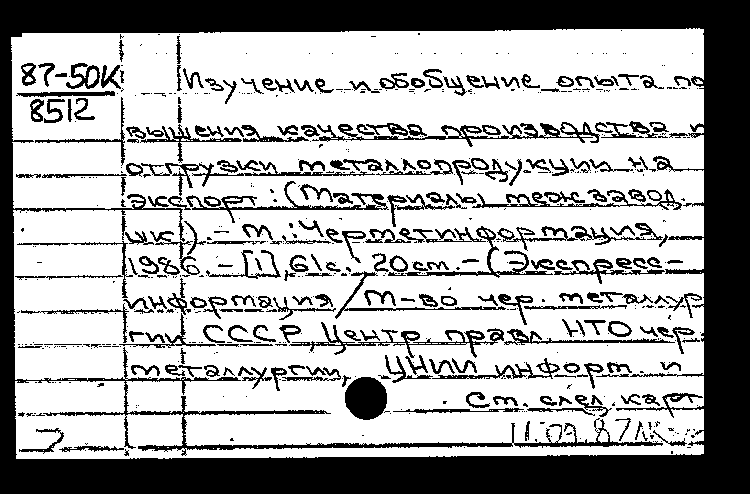 87-50К Изучение и обобщение опыта по
8512
вышения качества производства и
отгрузки металлопродукции на
экспорт : (Материалы межзавод.
шк.). - М. : Черметинформация,
1986. - [1], 61 с. ; 20 см. - (Экспресс-
информация / М-во чер. металлур
гии СССР, Центр. правл. НТО чер.
металлургии, ЦНИИ информ. и
См. след. карт
11.09.87